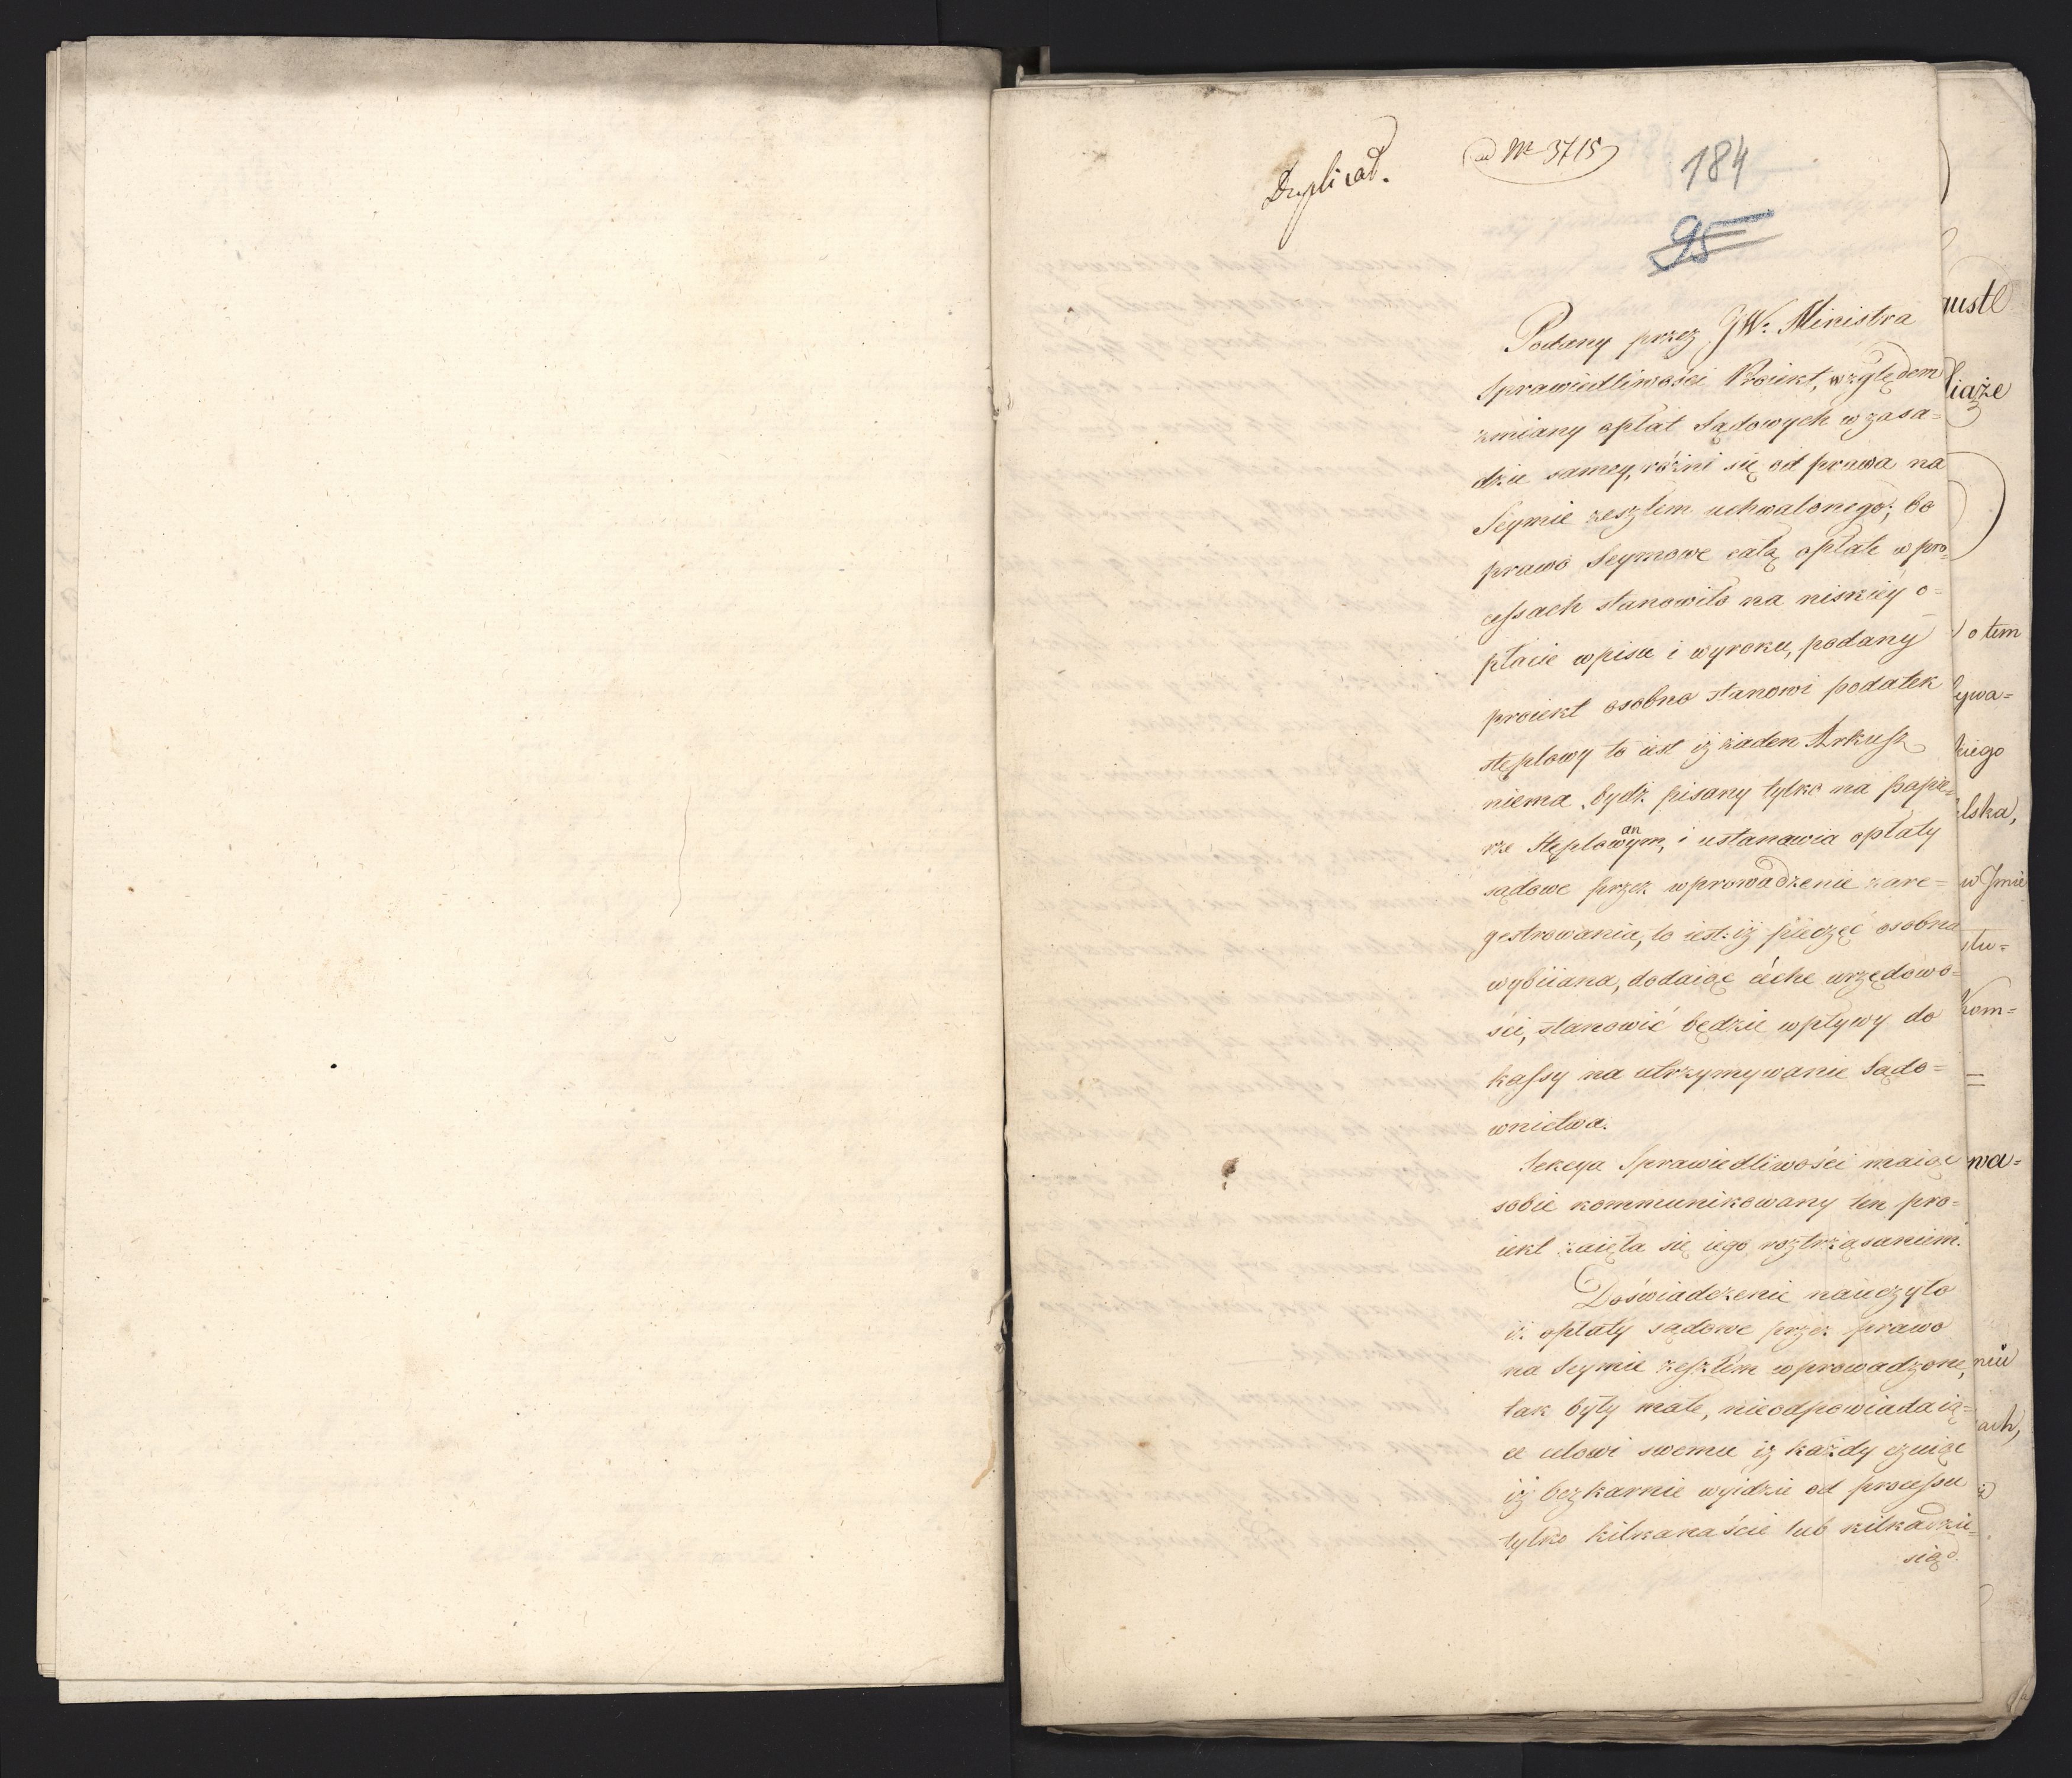 Duplicat.
ad Nr 3715
184
95
Podany przez JW. Ministra
Sprawiedliwości Proiekt, względem
zmiany opłat Sądowych w zasa=
dzie samey, różni się od prawa na
Seymie zeszłem uchwalonego; bo
prawo Seymowe całą opłatę w pro=
cessach stanowiło na niskiéy o=
płacie wpisu i wyroku, podany
proiekt osobno stanowi podatek
stęplowy to iest iż żaden Arkusz
niema bydź pisany tylko na papie=
rze Stęplowanym, i ustanawia opłaty
sądowe przez wprowadzenie zare=
gestrowania, to iest: iż pieczęć osobno
wybiiana, dodaiąc céchę urzędowo=
ści, stanowić będzie wpływy do
kassy na utrzymywanie Sądo=
wnictwa.
Sekcya Sprawiedliwości maiąc
sobie kommunikowany ten pro=
iekt zaięła się iego roztrząsaniem.
Doświadczenie nauczyło
iż opłaty sądowe przez prawo
na Seymie zeszłem wprowadzone,
tak były małe, nieodpowiadaią=
ce celowi swemu iż każdy czuiąc
iż bezkarnie wyidzie od processu
tylko kilkanaście lub kilkadzie=
siąt
iąże
o tem
ywa=
kiego
lska,
w Jmie
stu=
kom=
=
wa=
niu
ach,